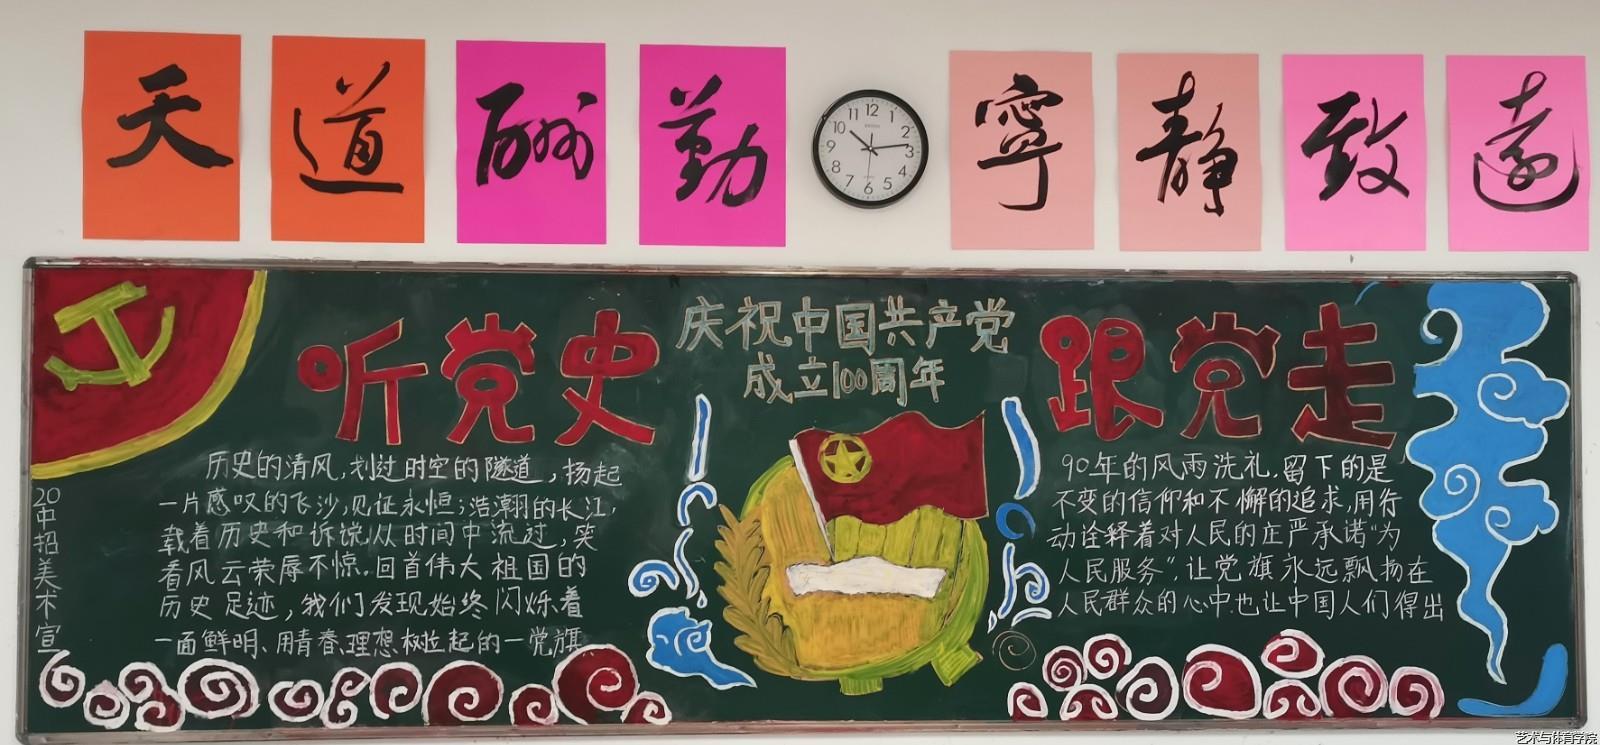 天道酬勤
寧静致遠
听党史
庆祝中国共产党
成立100周年
跟党走
历史的清风,划过时空的隧道,扬起
一片感叹的飞沙,见证永恒;浩瀚的长江,
载着历史和诉说,从时间中流过,笑
看风云荣辱不惊.回首伟大祖国的
历史足迹,我们发现始终闪烁着
一面鲜明、用青春、理想树立起的一党旗
90年的风雨洗礼,留下的是
不变的信仰和不懈的追求,用行
动诠释着对人民的庄严承诺“为
人民服务”,让党旗永远飘扬在
人民群众的心中.也让中国人们得出
20中招美术宣
12
1
2
3
4
5
6
7
8
9
10
11
艺术与体育学院